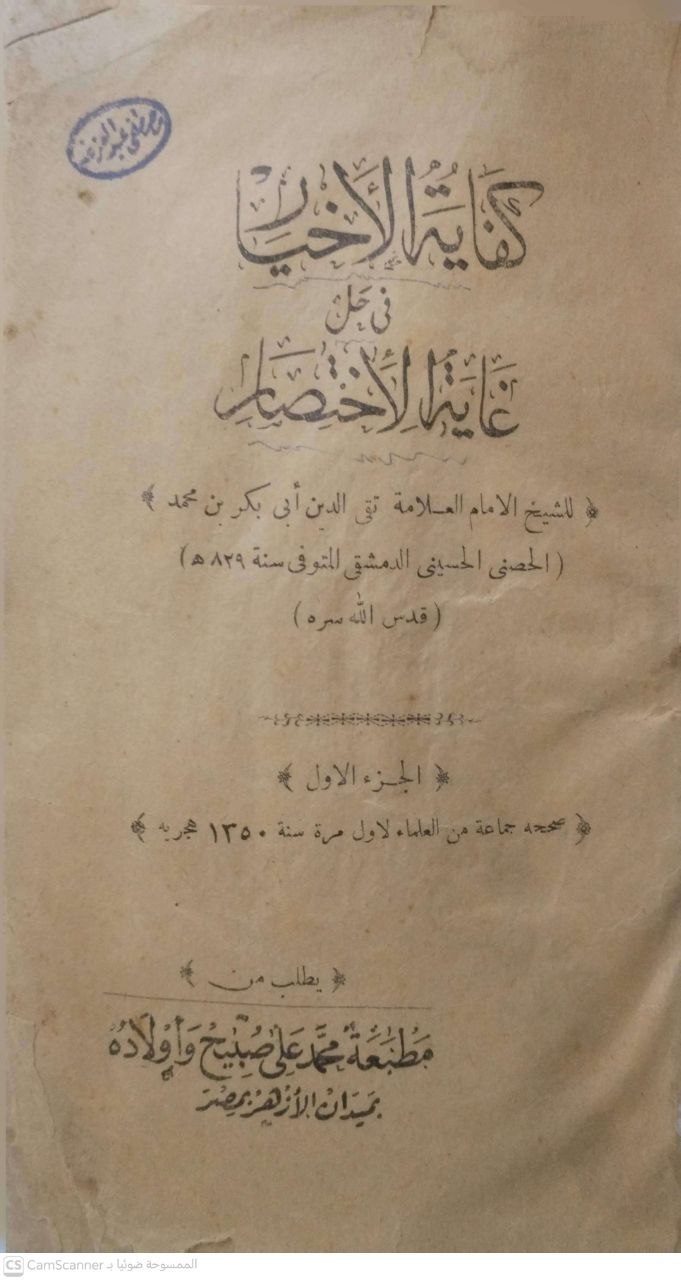 مصطفى عبد العزيز
كفاية الأخيار
فى حل
غاية الإختصار
﴿ للشيخ الامام العلامة تقى الدين أبى بكر بن محمد ﴾
( الحصنى الحسينى الدمشقى المتوفى سنة ٨٢٩ هـ )
( قدس الله سره )
﴿ الجزء الاول ﴾
﴿ صححه جماعة من العلماء لاول مرة سنة ١٣٥٠ هجريه ﴾
﴿ يطلب من ﴾
مَطْبَعَة محمَّد عَلى صُبيْح وَأوْلَادُه
بمَيدَان الأزْهَر بمِصْرَ
CS CamScanner الممسوحة ضوئيا بـ